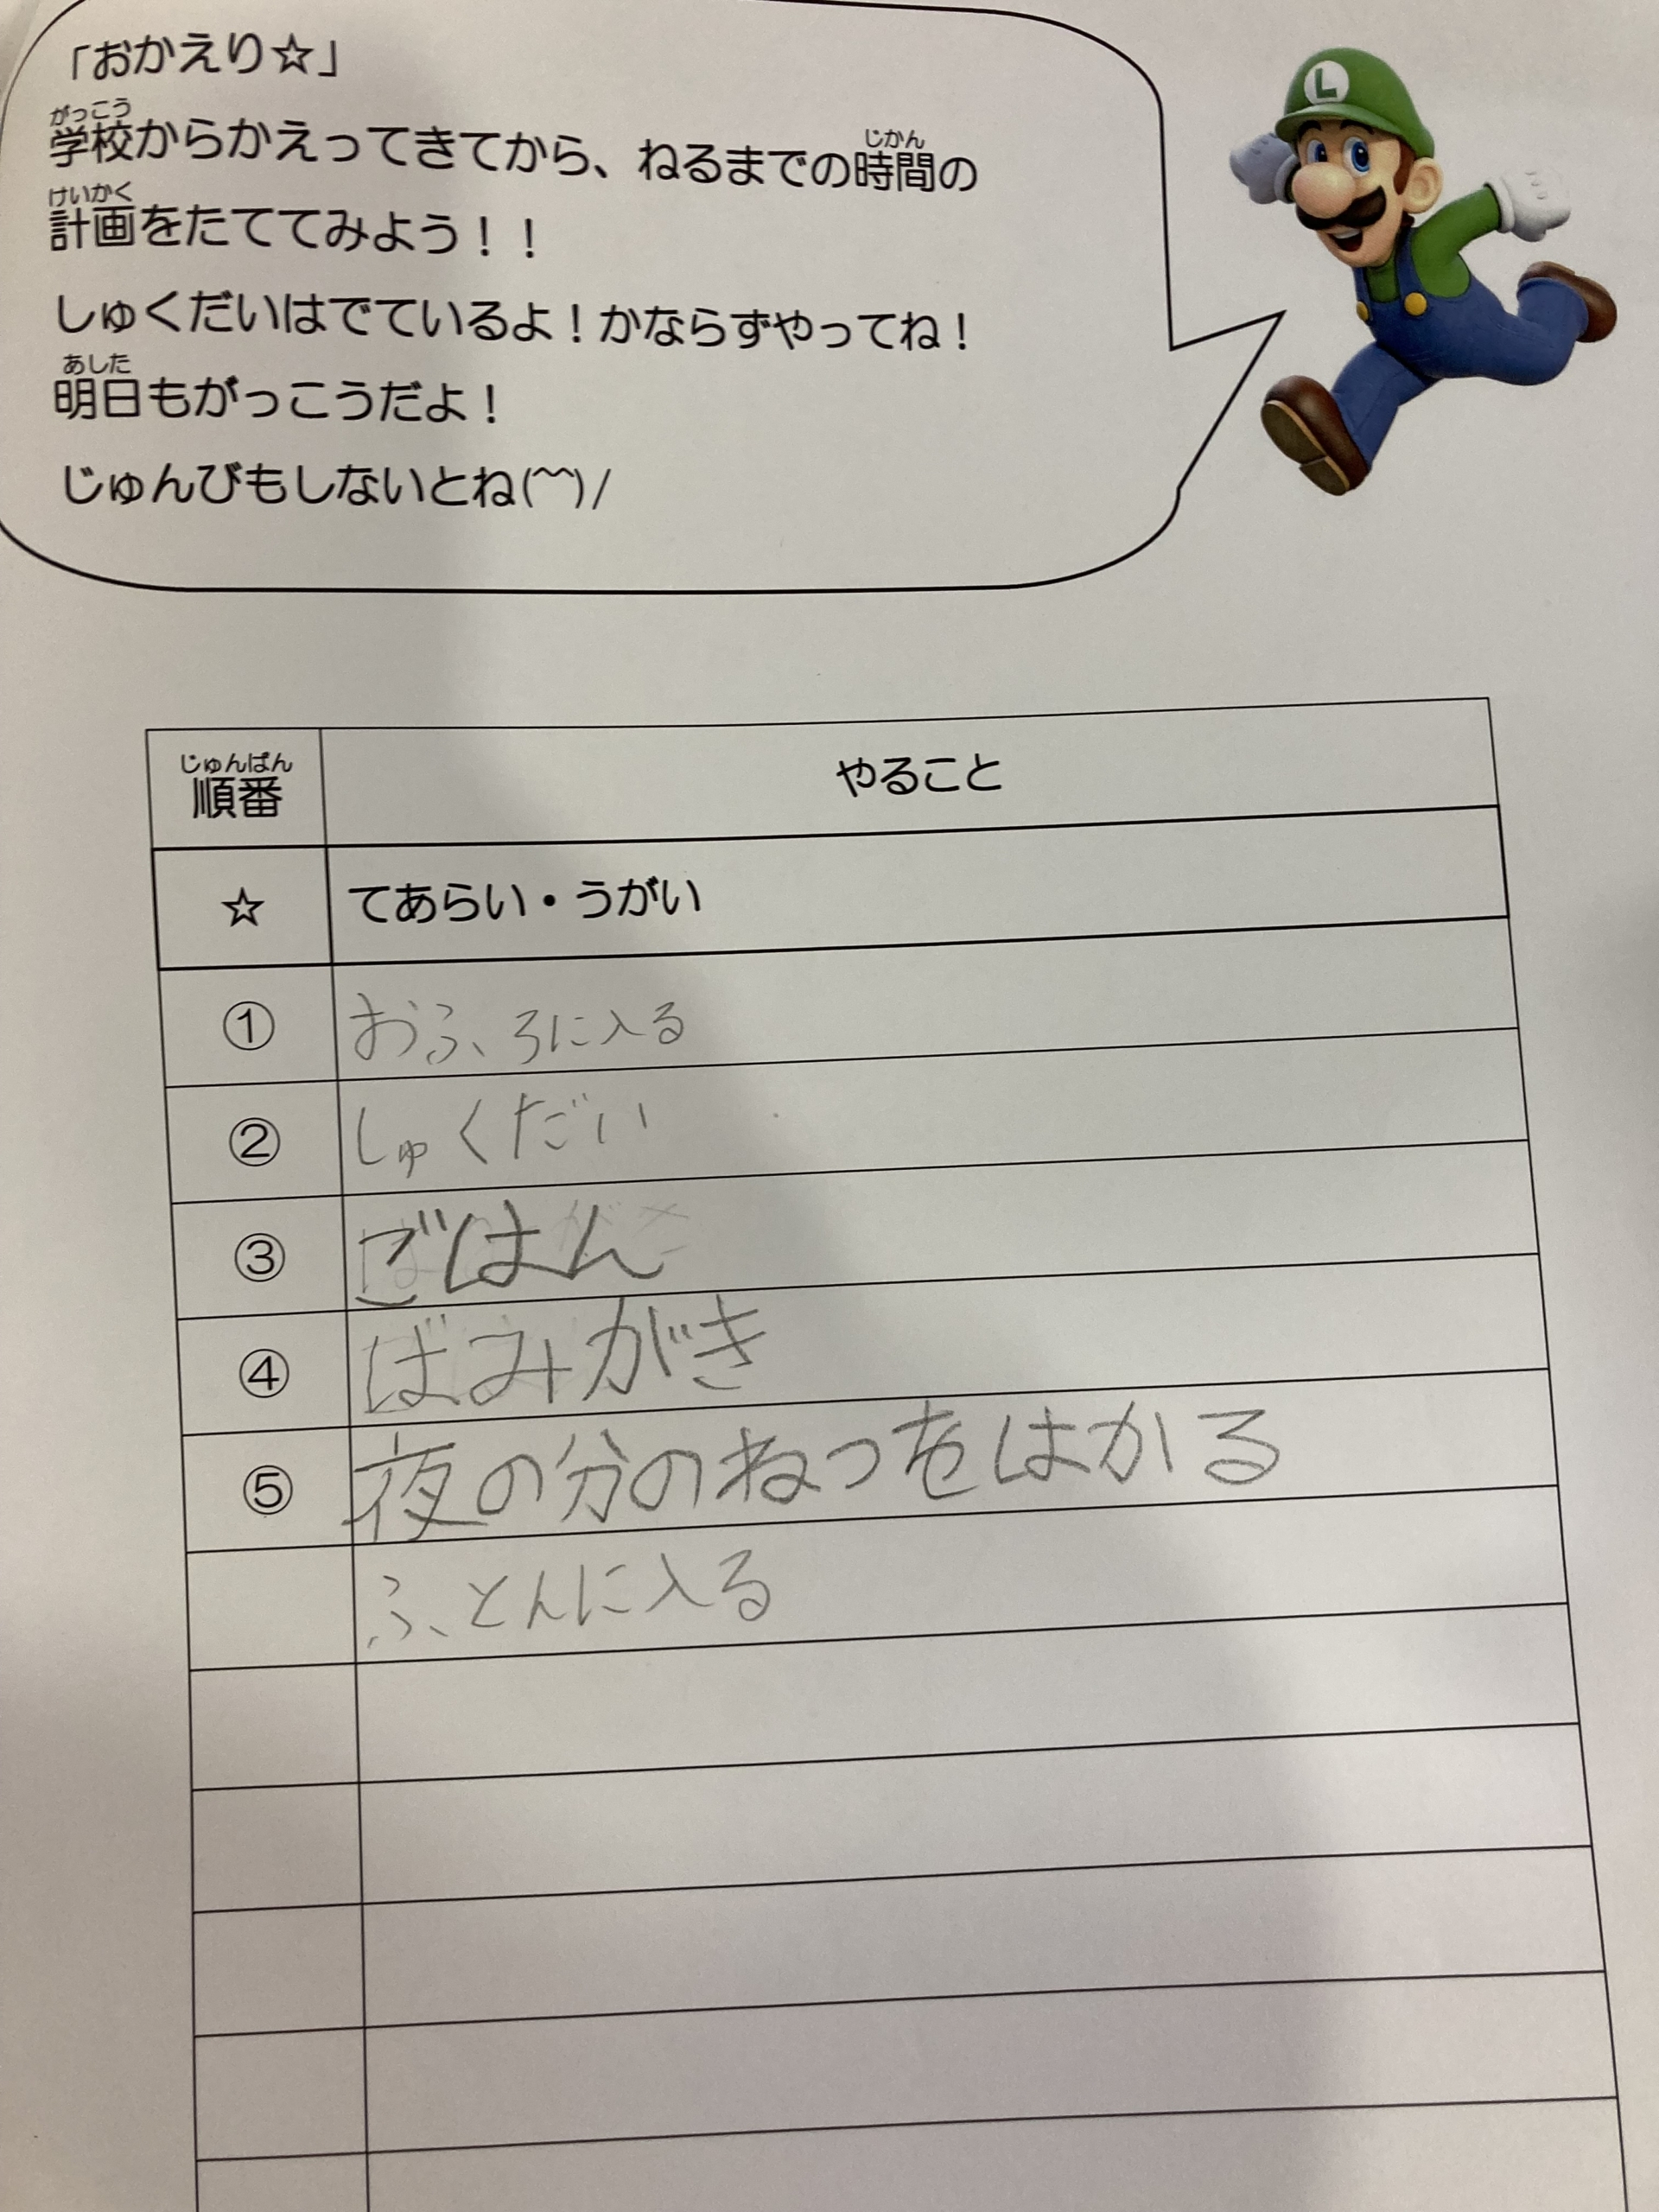 「おかえり☆」
がっこう じかん
学校からかえってきてから、ねるまでの時間の
けいかく
計画をたててみよう！！
しゅくだいはでているよ！かならずやってね！
あした
明日もがっこうだよ！
じゅんびもしないとね(^^)/
L
じゅんばん
順番 やること
☆ てあらい・うがい
① おふろに入る
② しゅくだい
③ ごはん
④ ばみがき
⑤ 夜の分のねつをはかる
ふとんに入る